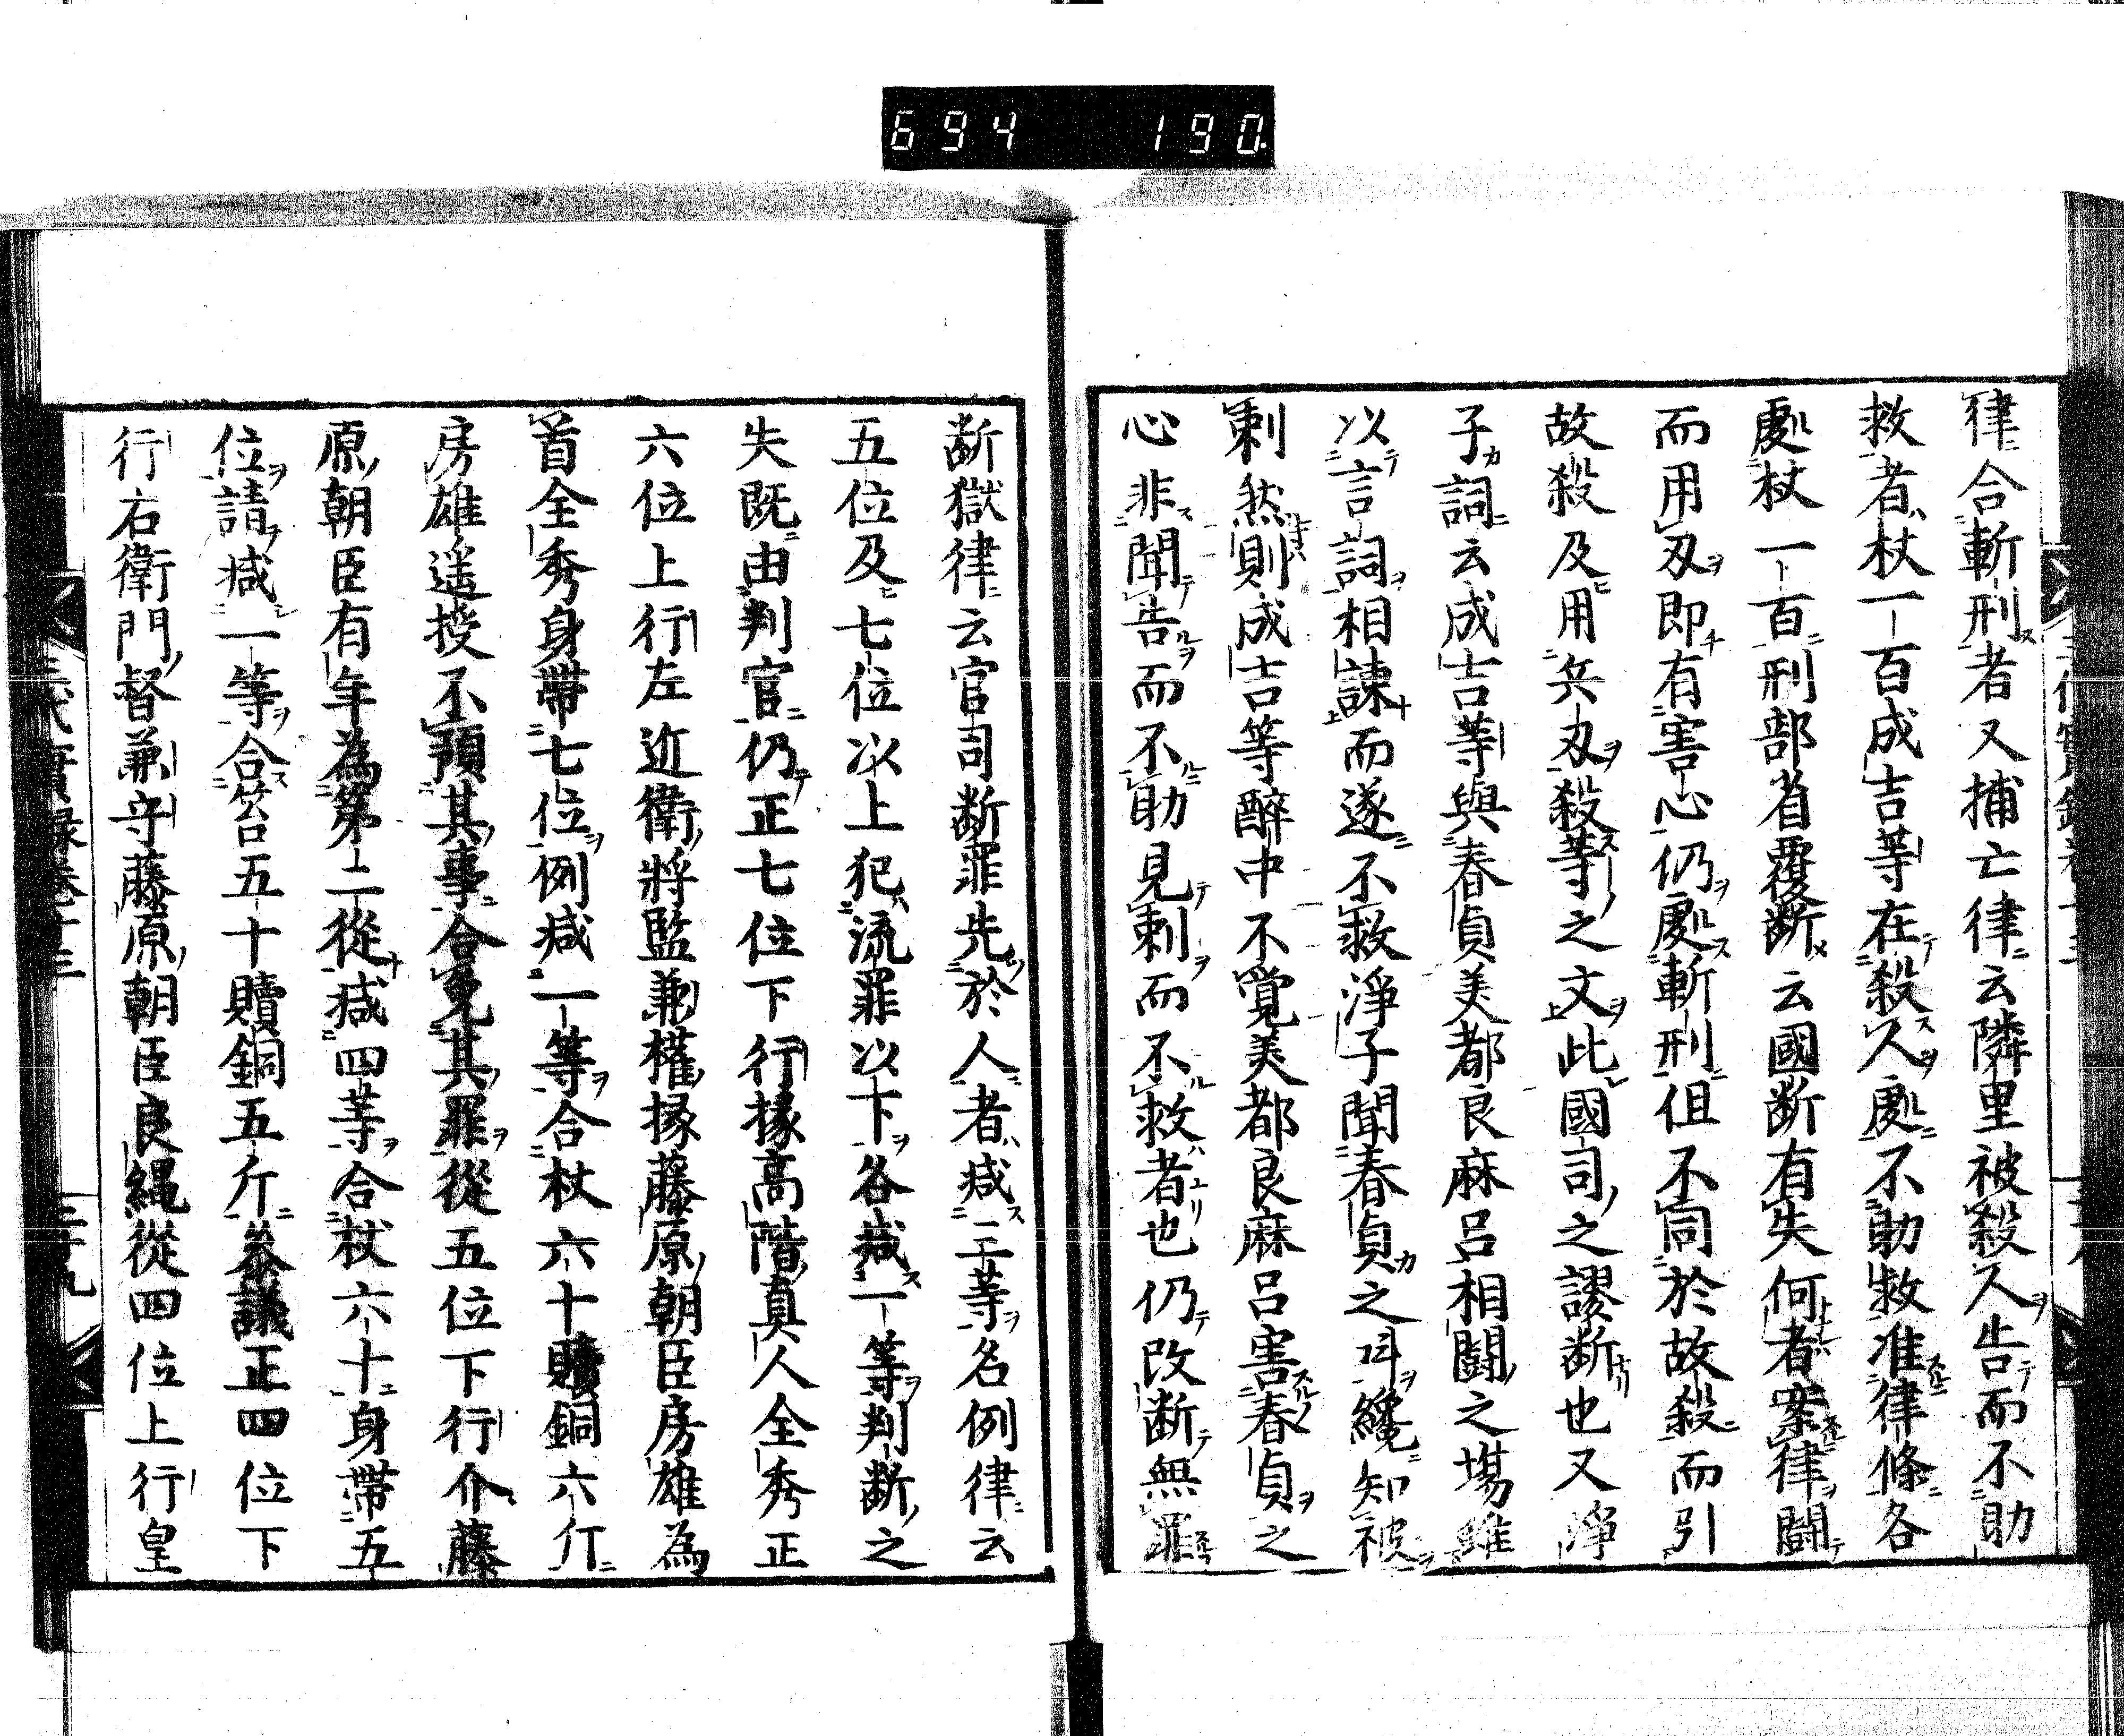 694 190
律合斬刑者又捕亡律云隣里被殺人告而不助
救者杖一百成吉等在殺人處不助救准律條各
處杖一百刑部省覆断云國断有失何者案律闘
而用刃即有害心仍處斬刑但不同於故殺而引
故殺及用兵刃殺等之文此國司之謬断也又淨
子詞云成吉等與春貞美都良麻呂相闘之場雖
以言詞相諫而遂不救淨子聞春貞之叫纔知被
刺然則成吉等醉中不覺美都良麻呂害春貞之
心非聞告而不助見刺而不救者也仍改断無罪
断獄律云官司断罪失於人者減三等名例律云
五位及七位以上犯流罪以下各減一等判断之
失既由判官仍正七位下行掾高階真人全秀正
六位上行左近衛將監兼權掾藤原朝臣房雄為
首全秀身帶七位例減一等合杖六十贖銅六斤
房雄遥授不預其事合免其罪從五位下行介藤
原朝臣有年為第二從減四等合杖六十身帶五
位請減一等合笞五十贖銅五斤參議正四位下
行右衛門督兼守藤原朝臣良縄從四位上行皇
三代實録卷十三
三十九